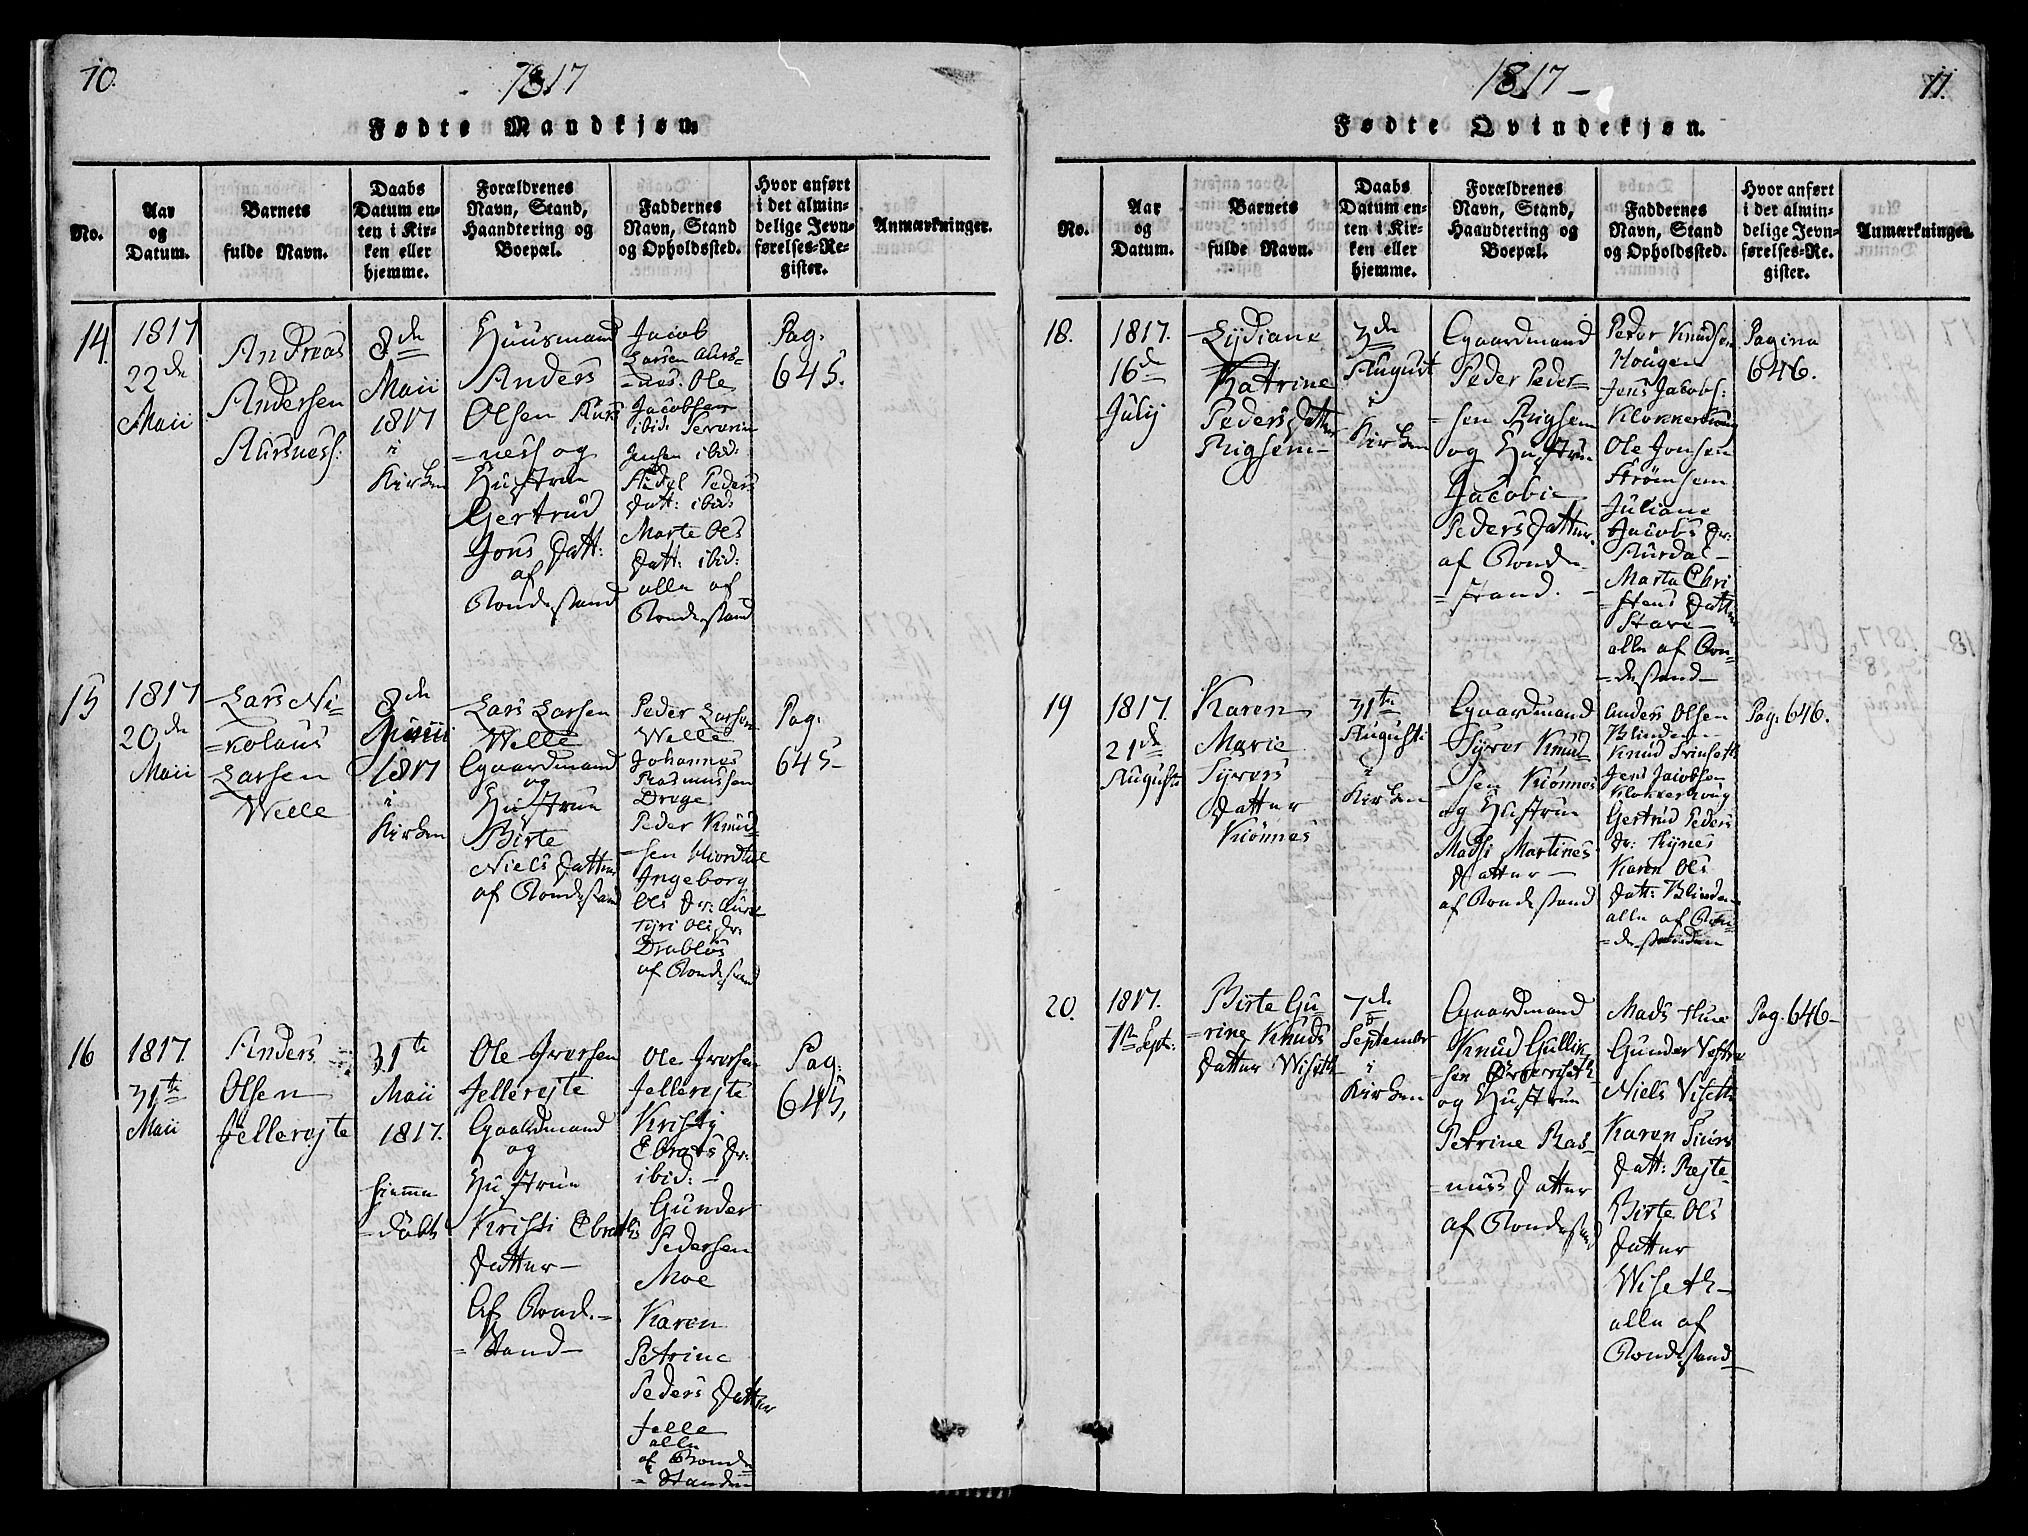 10.
1817
Fødte Mandkjøn.
No.
Aar
og
Datum.
Barnets
fulde Navn.
Daabs
Datum en-
ten i Kir-
ken eller
hjemme.
Forældrenes
Navn, Stand,
Haandtering og
Boepæl.
Faddernes
Navn, Stand
og Opholdssted.
Hvor anført
i det almin-
delige Jevn-
førelses-Re-
gister.
Anmærkninger.
14.
1817
22de
Maii
Andreas
Andersen
Aursness:
8de
Maii
1817
i
Kirken
Huusmand
Anders
Olsen Aurs
=ness og
Hustrue
Gertrud
Jons Datt:
af
Bondestand
Jacob
Larsen Aurs-
=nes. Ole
Jacobsen
ibid: Severin
Jensen ibid:
Sidsel Peders
Datt: ibid:
Marte Ols
Datt: ibid:
alle af
Bondestand
Pag:
645.
15
1817
20de
Maii
Lars Ni-
=kolaus
Larsen
Welle
8de
Junii
1817
i
Kirken
Lars Larsen
Welle
Gaardmand
og
Hustrue
Birte
Niels Datter
af Bondestand
Peder Larsen
Welle
Johannes
Rasmussen
Drage
Peder Knud-
-sen Hiordthol
Ingeborg
Ols Dr: Aure
Tyri Olis Dr:
Drabløs
af Bondestand
Pag:
645-
16
1817.
31te
Maii
Anders
Olsen
Jellerejte
31te
Maii
1817.
hiemme
=døbt
Ole Iversen
Jellerejte
Gaardmand
og
Hustrue
Kristi Ebraths
Datter-
Af Bonde-
=stand-
Ole Iversen
Jellerejte
Kristi
Ebrats Dr:
ibid:-
Gunder
Pedersen
Moe
Karen
Petrine
Peders Datter
Jelle
alle
af Bonde
=standen
Pag:
645,
1817-
11.
Fødte Qvindekjøn.
No.
Aar
og
Datum.
Barnets
fulde Navn.
Daabs
Datum en-
ten i Kir-
ken eller
hjemme.
Forældrenes
Navn, Stand,
Haandtering og
Boepæl.
Faddernes
Navn, Stand
og Opholdssted.
Hvor anført
i det almin-
delige Jevn-
førelses-Re-
gister.
Anmærkninger.
18.
1817.
16de
Julij
Lydiane
Katrine
Peders Datter
Rigsem-
3de
August
i
Kirken
Gaardmand
Peder Peder-
=sen Rigsem
og Hustrue
Jacobie
Peders Datter
af Bonde-
=stand.
Peder Knudsen
Hougen
Jens Jacobs:
Klokkerhoug
Ole Jonsen
Strømhem
Juliane
Jacobs Dr:
Aurdal-
Marta Chri
=stens Datter
Stave-
alle af Bon=
=destand-
Pagina
646.
19
1817.
21de
Augusti
Karen
Marie
Syvers
Datter
Kiønnes
31te
Augusti
i
Kirken
Gaardmand
Syver Knud-
-sen Kiønnes
og Hustrue
Madsi Martines
Datter-
af Bondestand
Anders Olsen
Blindem-
Knud Svinseth
Jens Jacobsen
Klokkerhoug
Gertrud Peders
Dr: Rynes
Karen Ols
Datt: Blindem
alle af Bon-
=destanden
Pag. 646.
20.
1817.
1te Sept:
Birte Gu-
=rine Knuds
Datter Wiseth
7de
September
i
Kirken
Gaardmand
Knud Gullik-
sen
og Hustrue
Petrine Ras-
=muss Datter
af Bondestand
Mads Hue
Gunder
Niels Viseth
Karen Siurs
Datt: Rejte-
Birte Ols
Datter
Wiseth-
alle af
Bondestand-
Pag. 646-